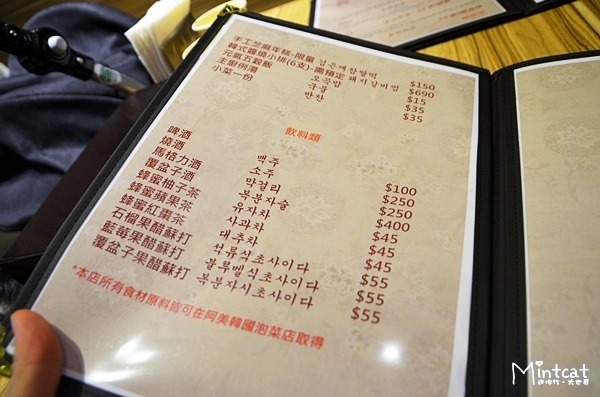 手工芝麻年糕-限量 검은깨찹쌀떡 $150
韓式醬燒小排(6支)-需預定 돼지갈비찜 $690
元氣五穀飯 오곡밥 $15
主廚例湯 국물 $35
小菜一份 반찬 $35
飲料類
啤酒 맥주 $100
燒酒 소주 $250
馬格力酒 막걸리 $250
覆盆子酒 복분자술 $400
蜂蜜柚子茶 유자차 $45
蜂蜜蘋果茶 사과차 $45
蜂蜜紅棗茶 대추차 $45
石榴果醋蘇打 석류식초사이다 $55
藍莓果醋蘇打 블루벨식초사이다 $55
覆盆子果醋蘇打 복분자시초사이다 $55
*本店所有食材原料皆可在阿美韓國泡菜店取得
Mintcat